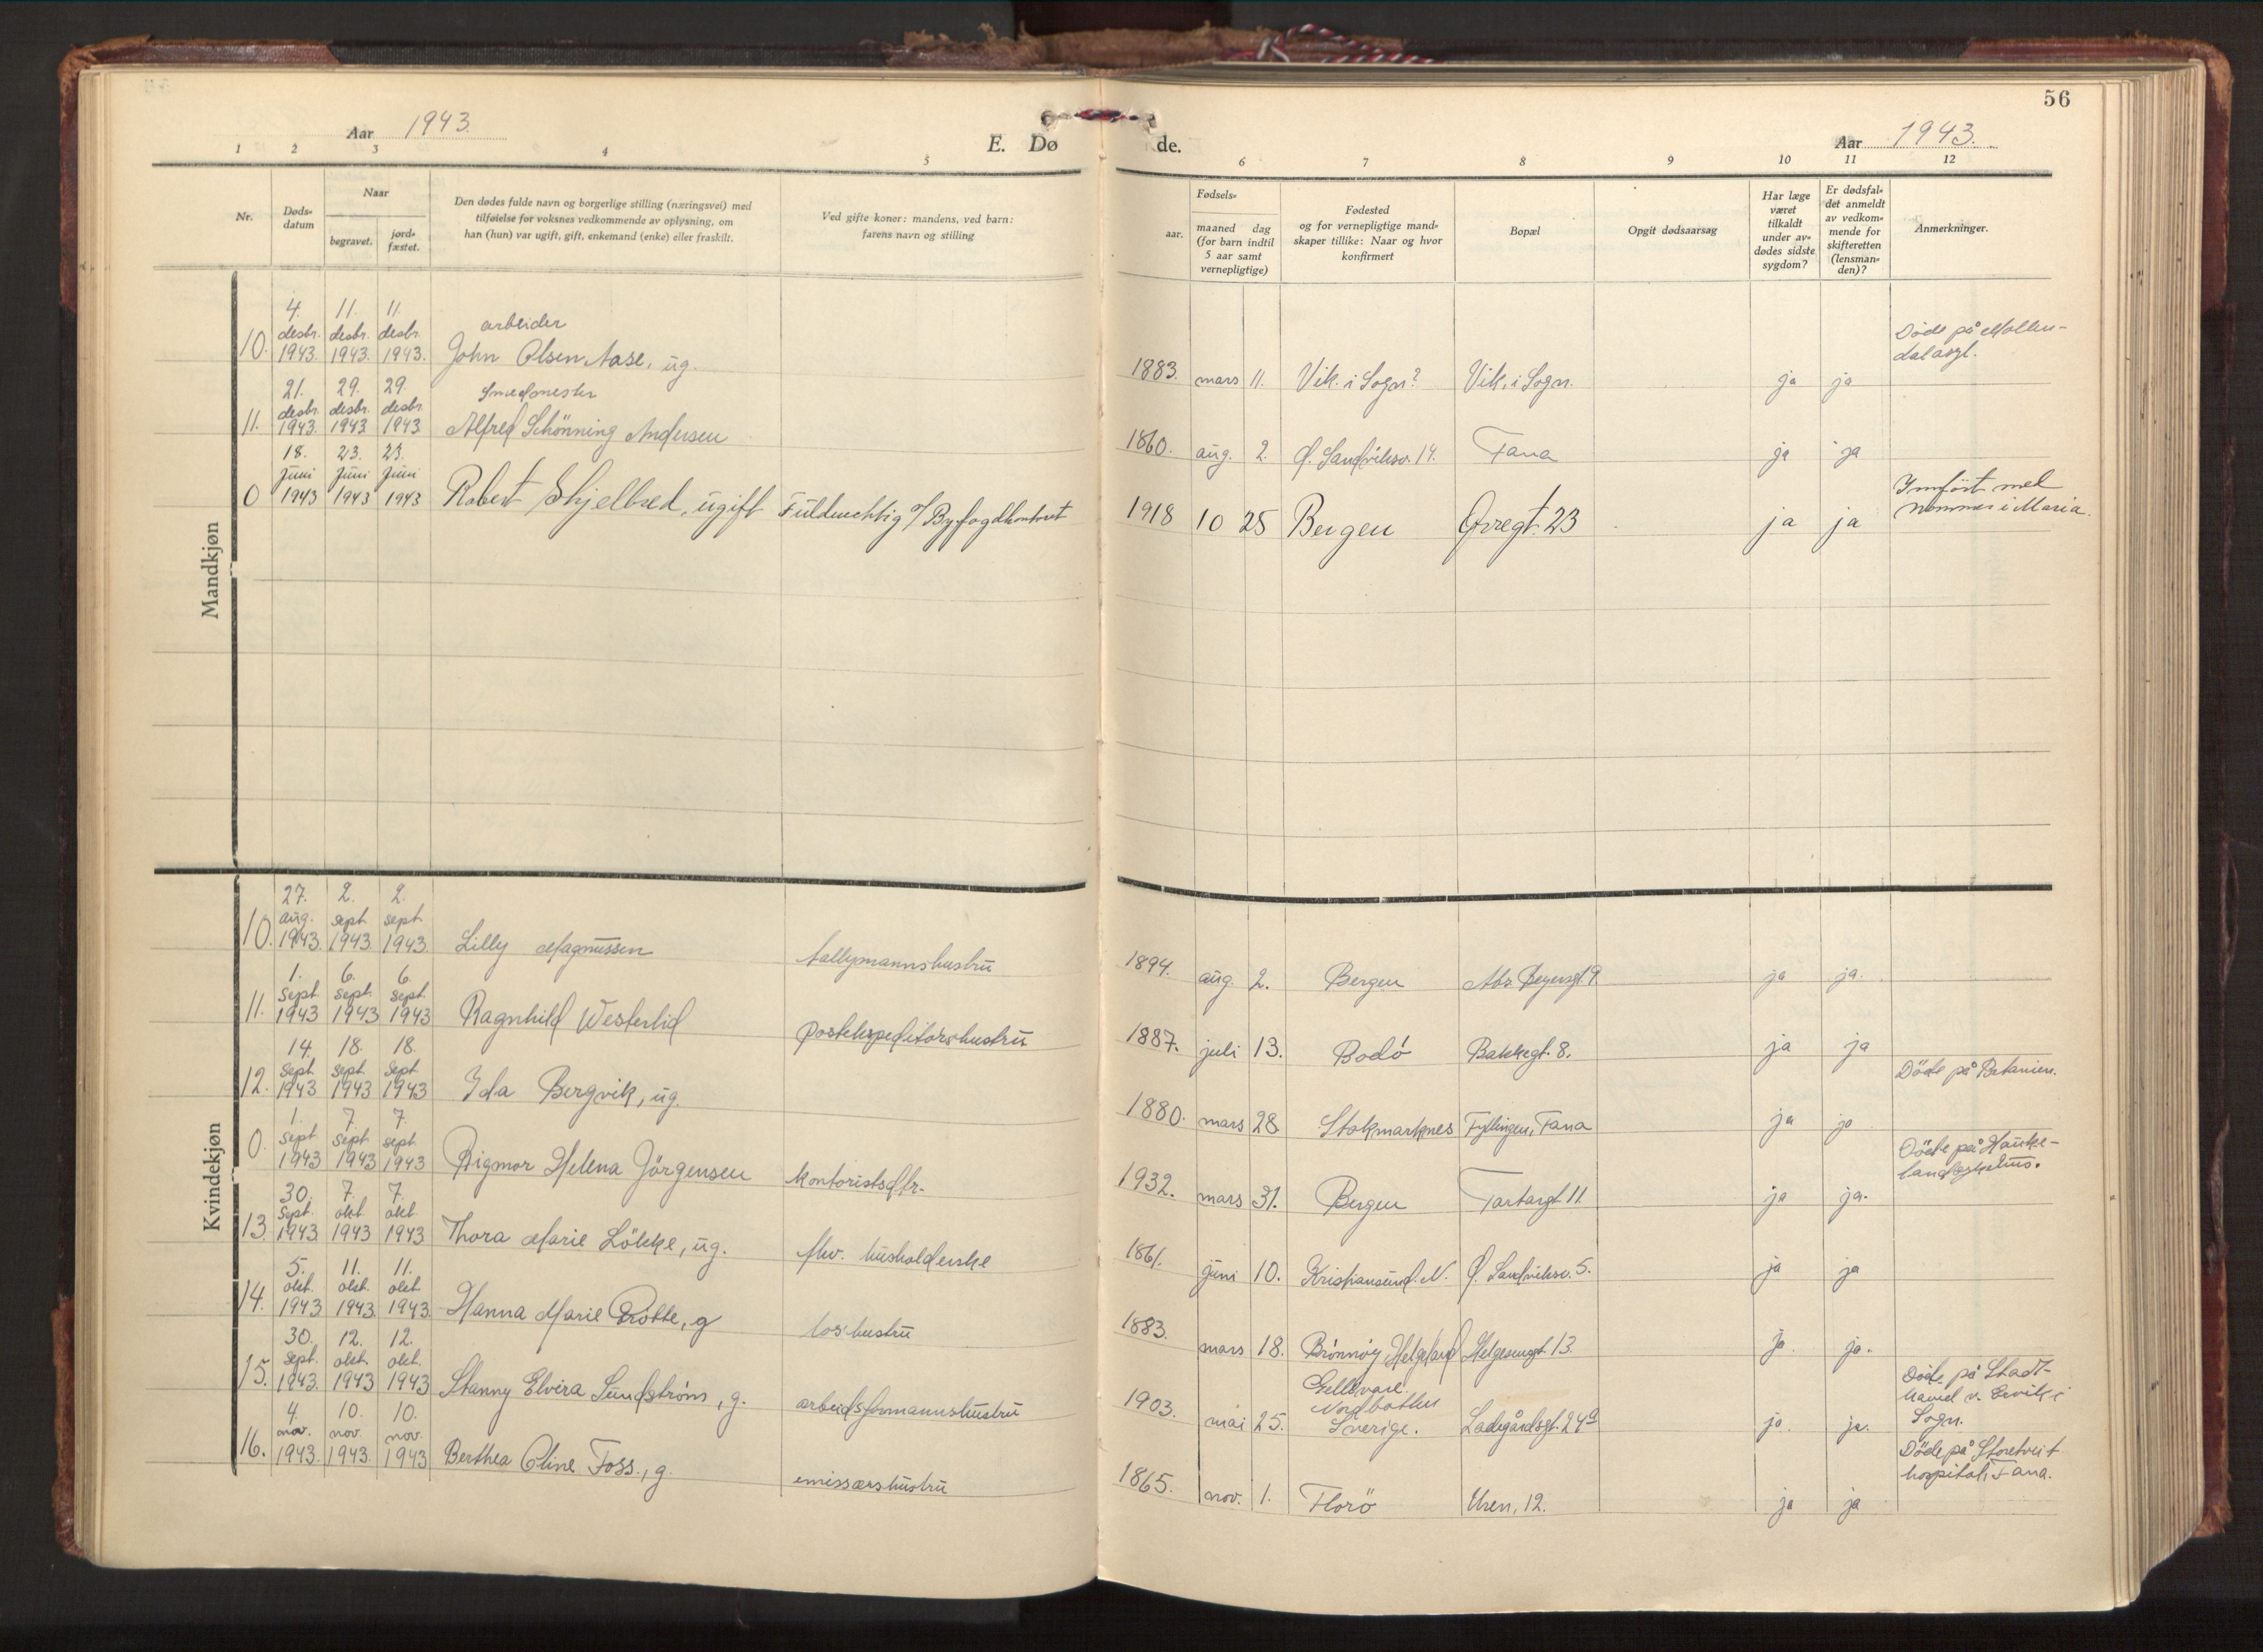 56
Aar 1943.
E. Dø de.
Aar 1943.
1 2 3 4 5 6 7 8 9 10 11 12
Nr.
Døds-
datum
Naar
begravet.
jord-
fæstet.
Den dødes fulde navn og borgerlige stilling (næringsvei) med
tilføielse for voksnes vedkommende av oplysning, om
han (hun) var ugift, gift, enkemand (enke) eller fraskilt.
Ved gifte koner: mandens, ved barn:
farens navn og stilling
Fødsels-
aar.
maaned dag
(for barn indtil
5 aar samt
vernepligtige)
Fødested
og for vernepligtige mand-
skaper tillike: Naar og hvor
konfirmert
Bopæl
Opgit dødsaarsag
Har læge
været
tilkaldt
under av-
dødes sidste
sygdom?
Er dødsfal-
det anmeldt
av vedkom-
mende for
skifteretten
(lensman-
den)?
Anmerkninger.
Mandkjøn
4. 11. 11. arbeider
desbr. desbr. desbr. Døde på Møllen-
10. 1943. 1943. 1943. John Olsen Aase, ug. 1883. mars 11. Vik. i Sogn? Vik. i Sogn. ja ja
21. 29. 29. Smedmester
desbr. desbr. desbr.
11. 1943. 1943 1943 Alfred Schönning Andersen 1860. aug. 2. Ø. Sandviksv. 14. Fana ja ja
18. 23. 23.
Juni Juni Juni Innført med
0 1943 1943 1943 Robert Skjelbred, ugift Fuldmektig v/ Byfogdkontoret 1918 10 25 Bergen Øvregt. 23 ja ja nummer i Maria.
Kvindekjøn
27. 2. 2.
aug. sept. sept.
10. 1943. 1943 1943. Lilly Magnussen tallymannshustru 1894. aug. 2. Bergen Abs. Beyersgt. 9 ja ja.
1. 6. 6.
sept. sept. sept.
11. 1943 1943 1943 Ragnhild Westerlid postekspeditørshustru 1887. juli 13. Bodø Bakkegt. 8. ja ja
14. 18. 18.
sept. sept. sept. Döde på Betanien.
12. 1943 1943 1943 Ida Bergvik, ug. 1880. mars 28 Stokmarknes Fyllingen, Fana ja ja
1. 7. 7.
sept. sept. sept. Döde på Hauke-
0. 1943 1943 1943 Rigmor Helena Jörgensen kontoristsdtr. 1932. mars 31. Bergen Tartargt. 11 ja ja.
30. 7. 7.
sept. okt. okt.
13. 1943. 1943 1943 Thora Marie Lökke, ug. fhv. husholderske 1861. juni 10. Kristiansund. N. Ø. Sandviksv. 5. ja ja
5. 11. 11.
okt. okt. okt.
14. 1943 1943 1943. Hanna Marie g loshustru 1883. mars 18. Brönnöy, Helgeland Helgesensgt. 13. ja. ja.
30. 12. 12.
sept. okt. okt. Gellivare. Döde på Stadt-
Nordbotten
15. 1943. 1943 1943 Stanny Elvira Sundström, g. arbeidsformannshustru 1903. mai 25. Sverige. Ladegårdsgt. 24a ja. ja. Sogn.
4. 10. 10.
nov. nov. nov. Döde på Storetveit
16. 1943. 1943. 1943 Berthea Oline Foss, g. emissærshustru 1865. nov. 1. Florö Uren, 12. ja ja hospital, Fana.